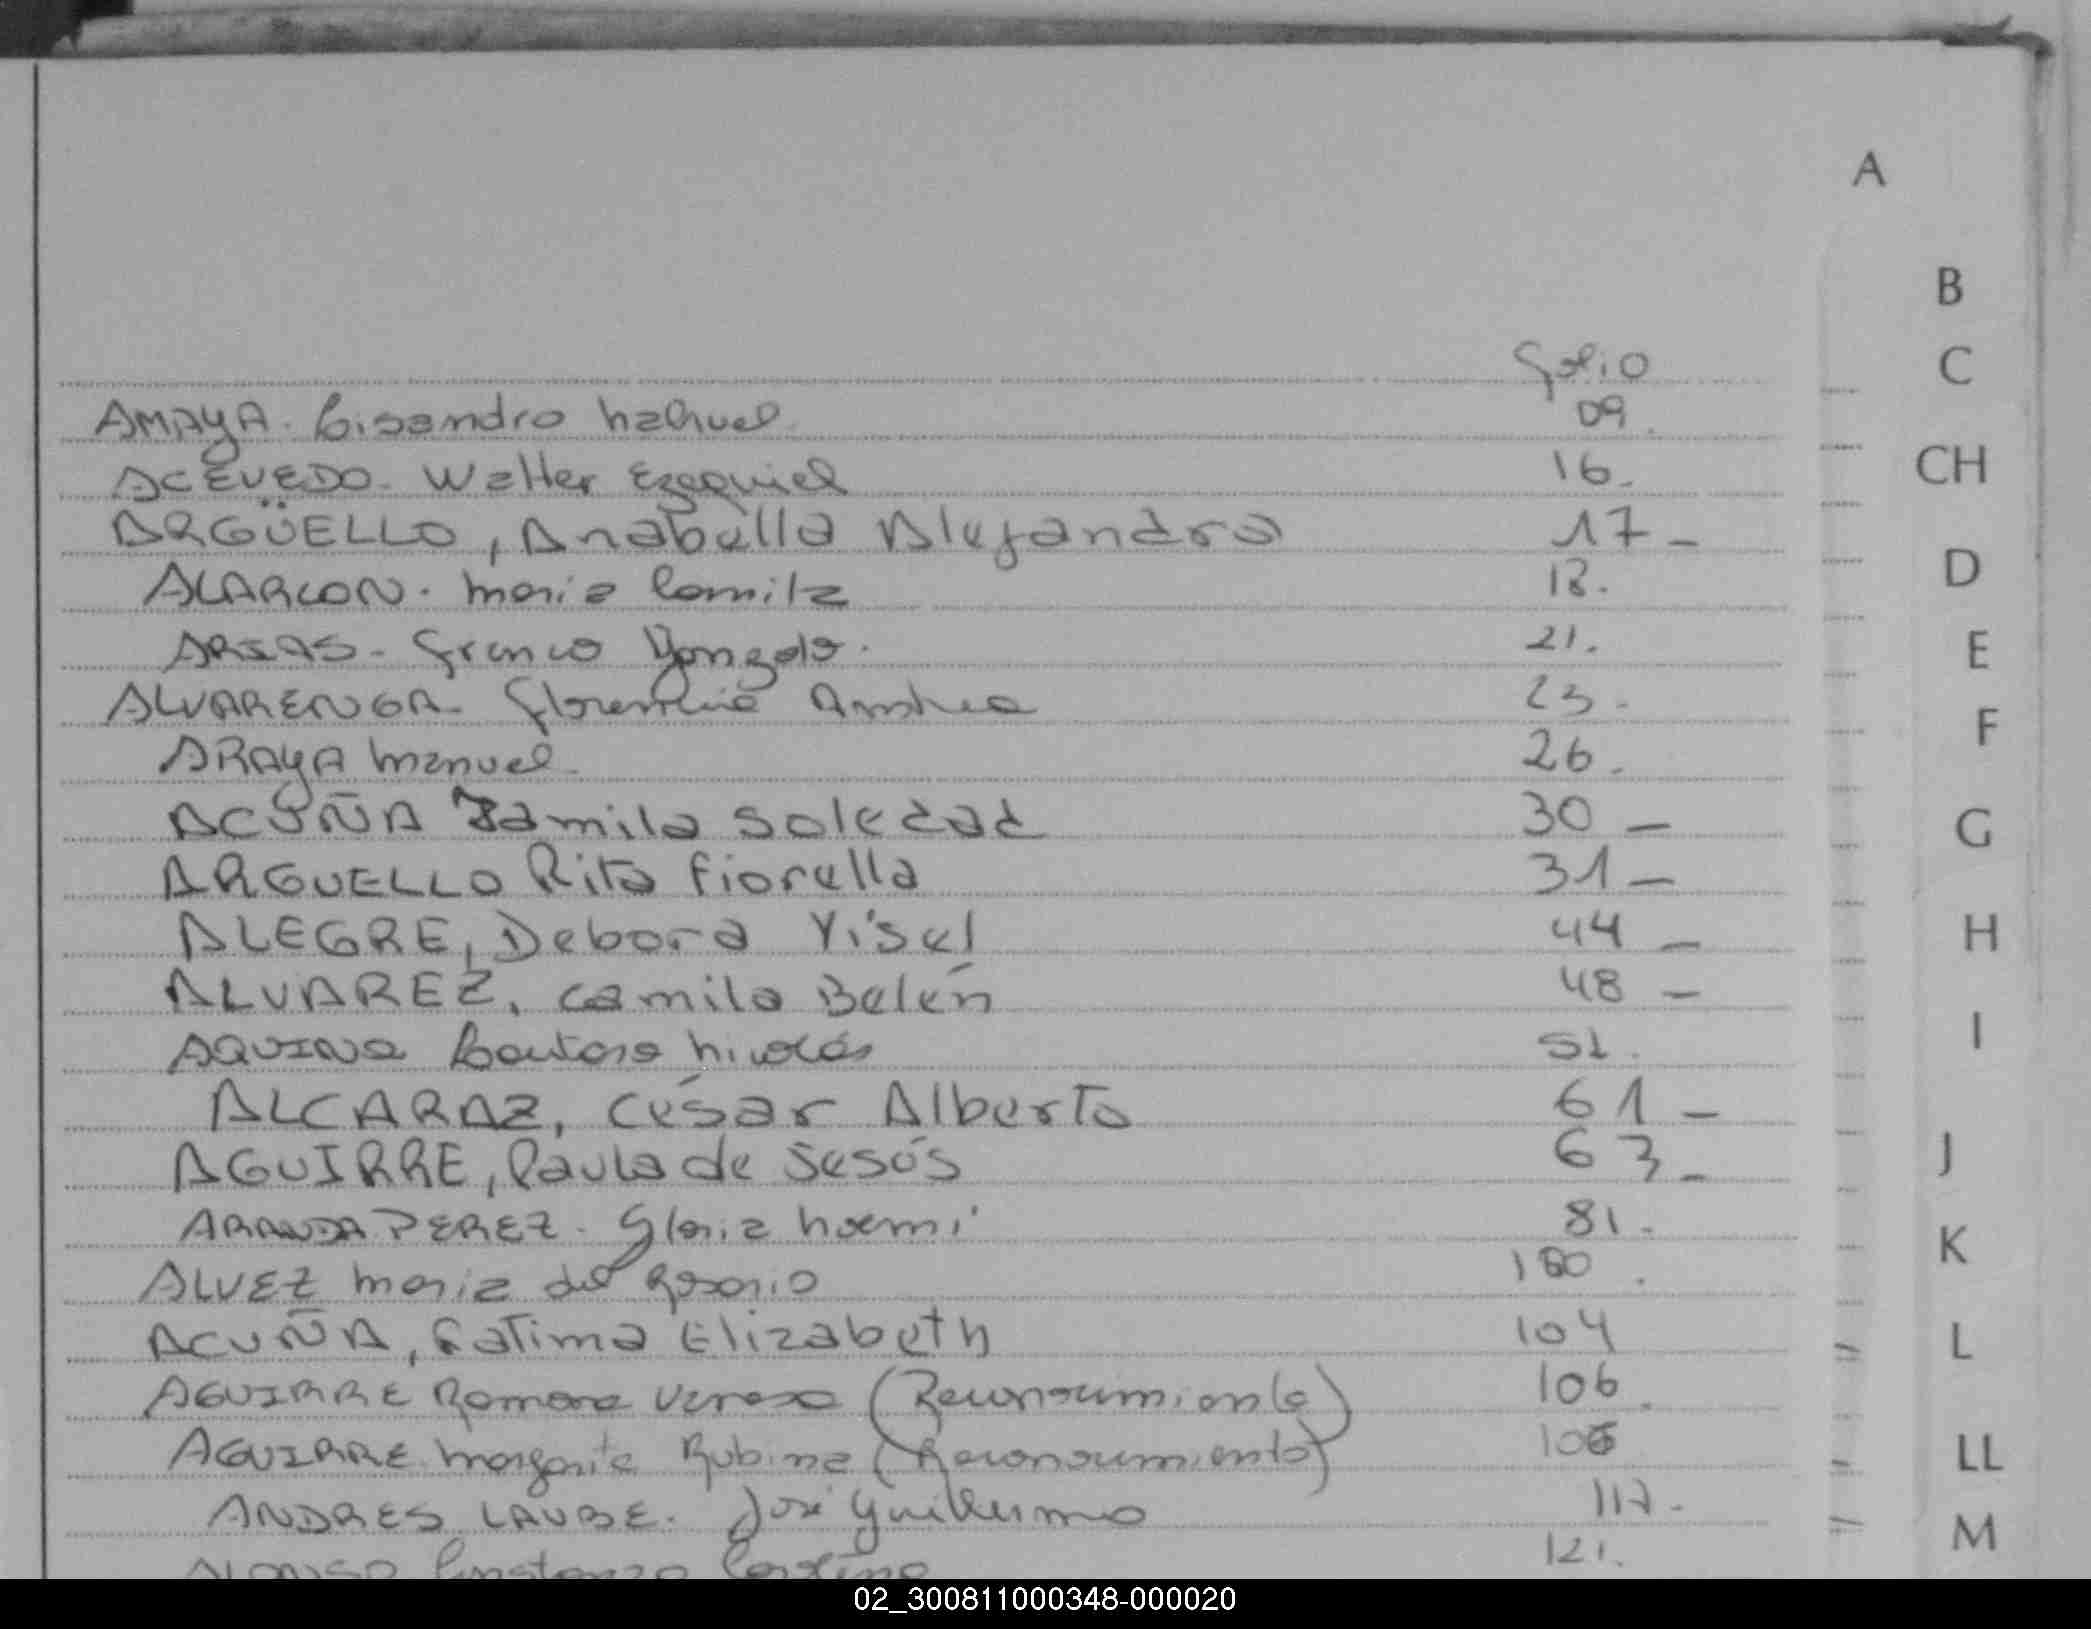 A
B
C
Folio
AMAYA. Lisandro Nahuel. 09.
CH
ACEVEDO. Walter Ezequiel 16.
ARGÜELLO, Anabella Alejandra 17 -
D
ALARCON. Maria Camila 18.
E
ARIAS - Franco Gonzalo. 21.
ALVARENGA - Florencia Andrea 23.
F
ARAYA Manuel. 26.
ACUÑA Yamila Soledad 30 -
G
ARGUELLO Rita Fiorella 31 -
ALEGRE, Debora Yisel 44 -
H
ALVAREZ, Camila Belén 48 -
I
AQUINO Lautaro Nicolás 51.
ALCARAZ, César Alberto 61 -
J
AGUIRRE, Paula de Jesús 63 -
ARANDA PEREZ - Gloria Noemí 81.
K
ALVEZ Maria del Rosario 100.
L
ACUÑA, Fatima Elizabeth 104
AGUIRRE Romara (Reconocimiento) 106.
AGUIRRE Margarita Rubina (Reconocimiento) 106
LL
ANDRES LAUBE. José Guillermo 117.
M
ALONSO Constanza 121.
02_300811000348-000020